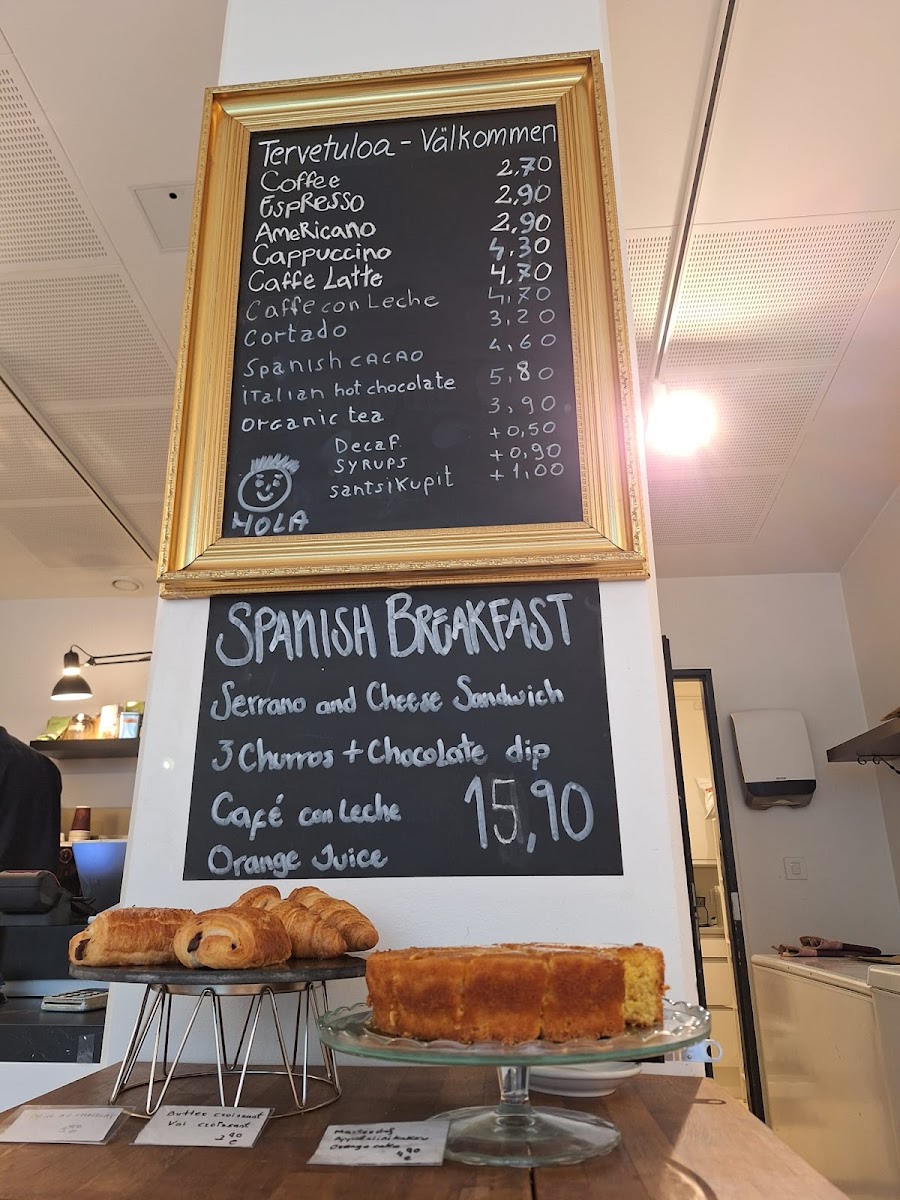 Tervetuloa - Välkommen
Coffee 2,70
Espresso 2,90
Americano 2,90
Cappuccino 4,30
Caffe Latte 4,70
Caffe con Leche 4,70
Cortado 3,20
Spanish cacao 4,60
italian hot chocolate 5,80
organic tea 3,90
Decaf +0,50
syrups +0,90
santsikupit +1,00
HOLA
SPANISH BREAKFAST
Serrano and Cheese Sandwich
3 Churros + Chocolate dip
Café con Leche 15,90
Orange Juice
Butter croissant
Voi croissant
2,90
€
Appelsiinikakku
Orange cake
4,90
€